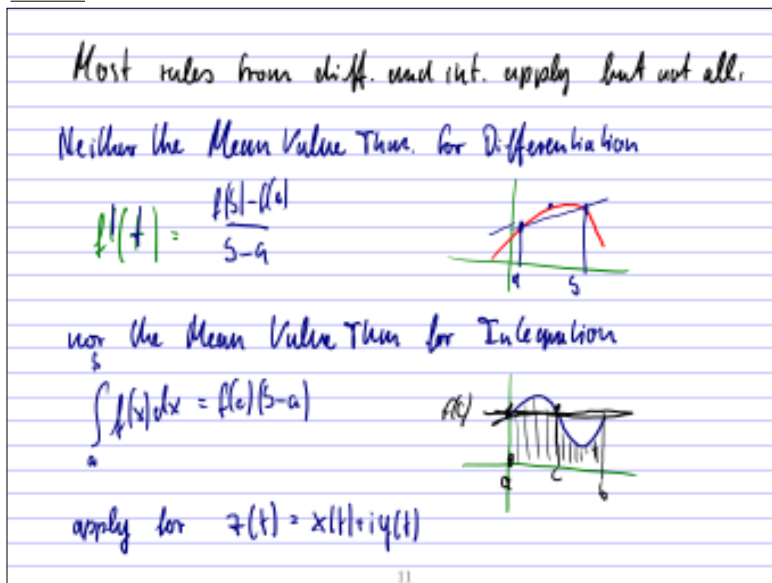 Most rules from diff. and int. apply but not all.
Neither the Mean Value Thm. for Differentiation
f'(t) = f(b)-f(a) / b-a
a b
nor the Mean Value Thm for Integration
∫_a^b f(x)dx = f(c)(b-a)
f(c)
a c b
apply for z(t) = x(t)+iy(t)
11